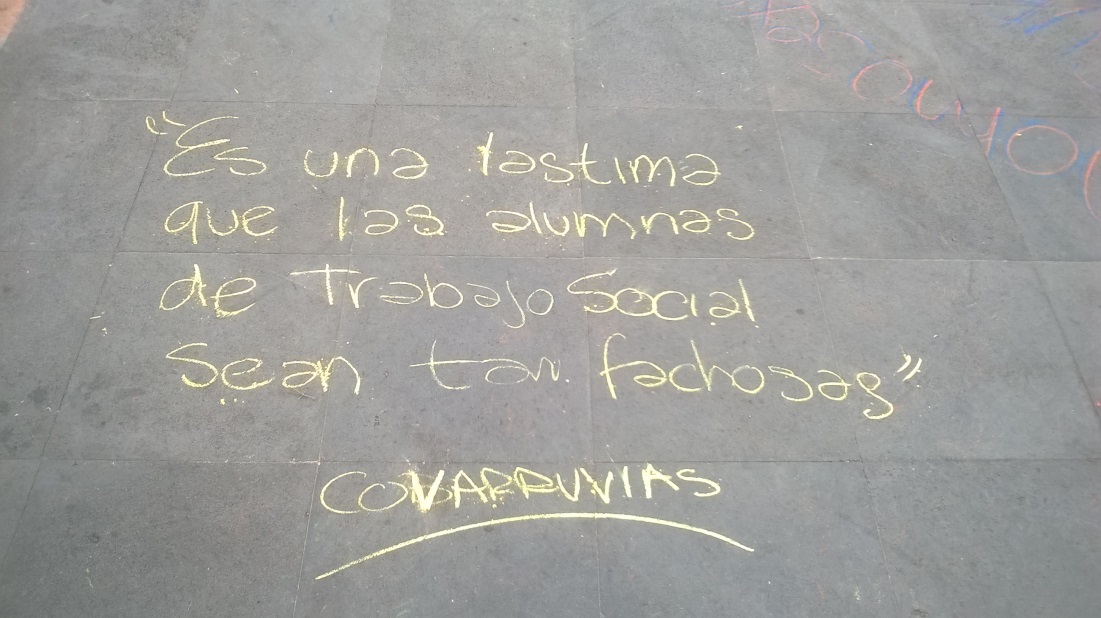 "Es una lastima
que las alumnas
de Trabajo Social
Sean tan fachosas"
COVARRUVIAS